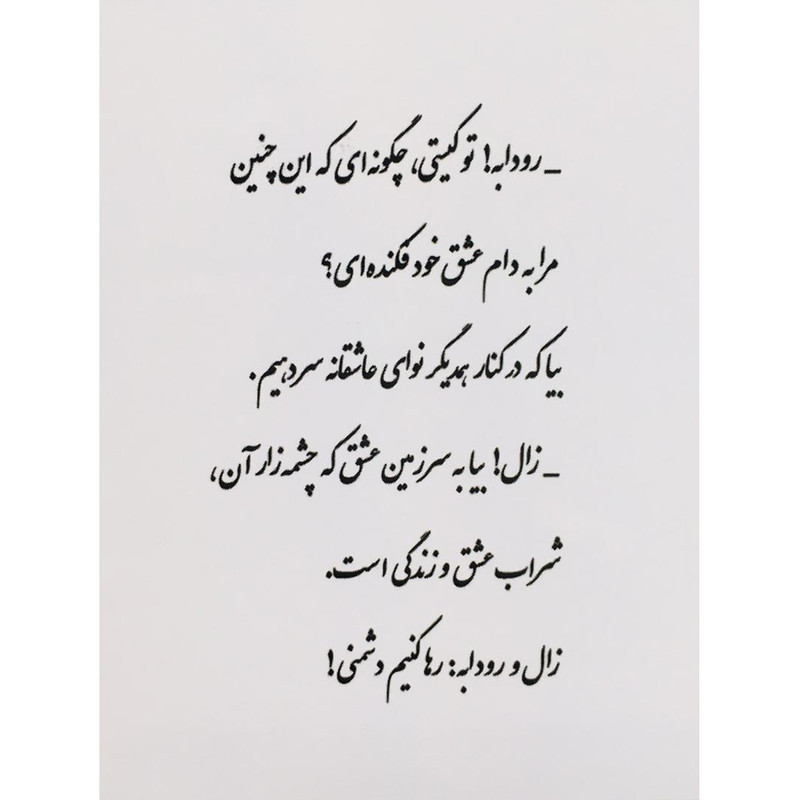 _ رودابه! تو کیستی، چگونه‌ای که این چنین
مرا به دام عشق خود فکنده‌ای؟
بیا که در کنار همدیگر نوای عاشقانه سر دهیم.
_ زال! بیا به سرزمین عشق که چشمه‌زار آن،
شراب عشق و زندگی است.
زال و رودابه: رها کنیم دشمنی!